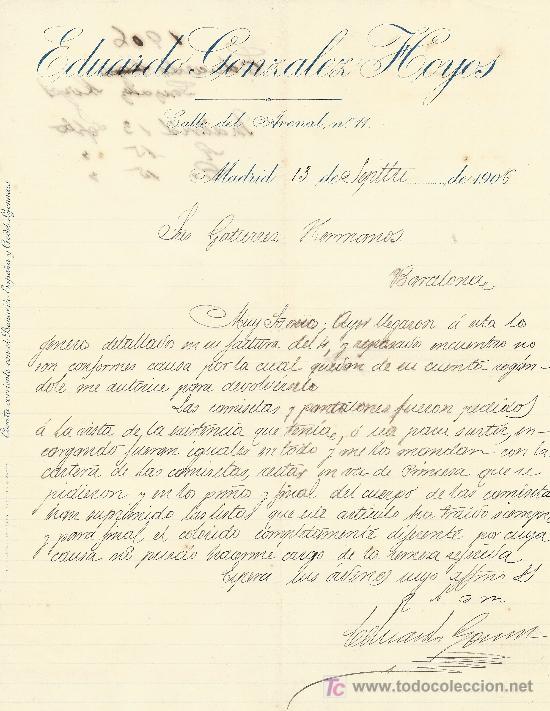 Eduardo Gonzalez Hoyos
Calle del Arenal, nº 11.
Madrid 13 de Septtre de 1906
Sres Gutierrez Hermanos
Barcelona
Muy Sres mio; Ayer llegaron á esta los
generos detallados en su factura del 4, y repasada encuentro no
son conformes causa por la cual quedan de su cuenta rogan-
dole me autorice para devolverselo
Las camisetas y pantalones fueron pedidos
á la vista de la existencia que tenia, ó sea para surtir, en-
cargando fueran iguales en todo y me los mandan con la
cartera de las camisetas, rectas en vez de
pidieron y en los puños y final del cuerpo de las camisetas
han suprimido las listas que este articulo ha traido siempre
y para final, el colorido completamente diferente por cuya
causa no puedo hacerme cargo de la remesa
Espera sus ordenes suyo affmo SS
q b s m
Eduardo Gonz
Cuenta corriente con el Banco de España y Credit Lyonnais
TC www.todocoleccion.net